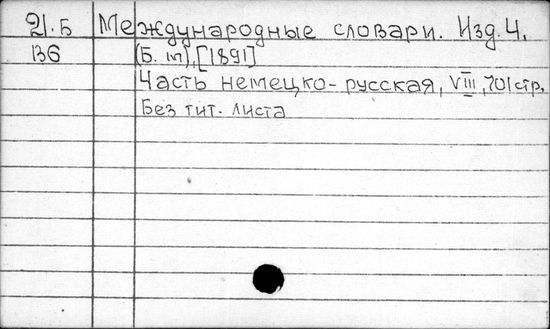 21.Б Международные словари. Изд. 4.
136 (Б. м), [1891]
Часть немецко-русская, VIII, 701 стр.
Без тит. листа